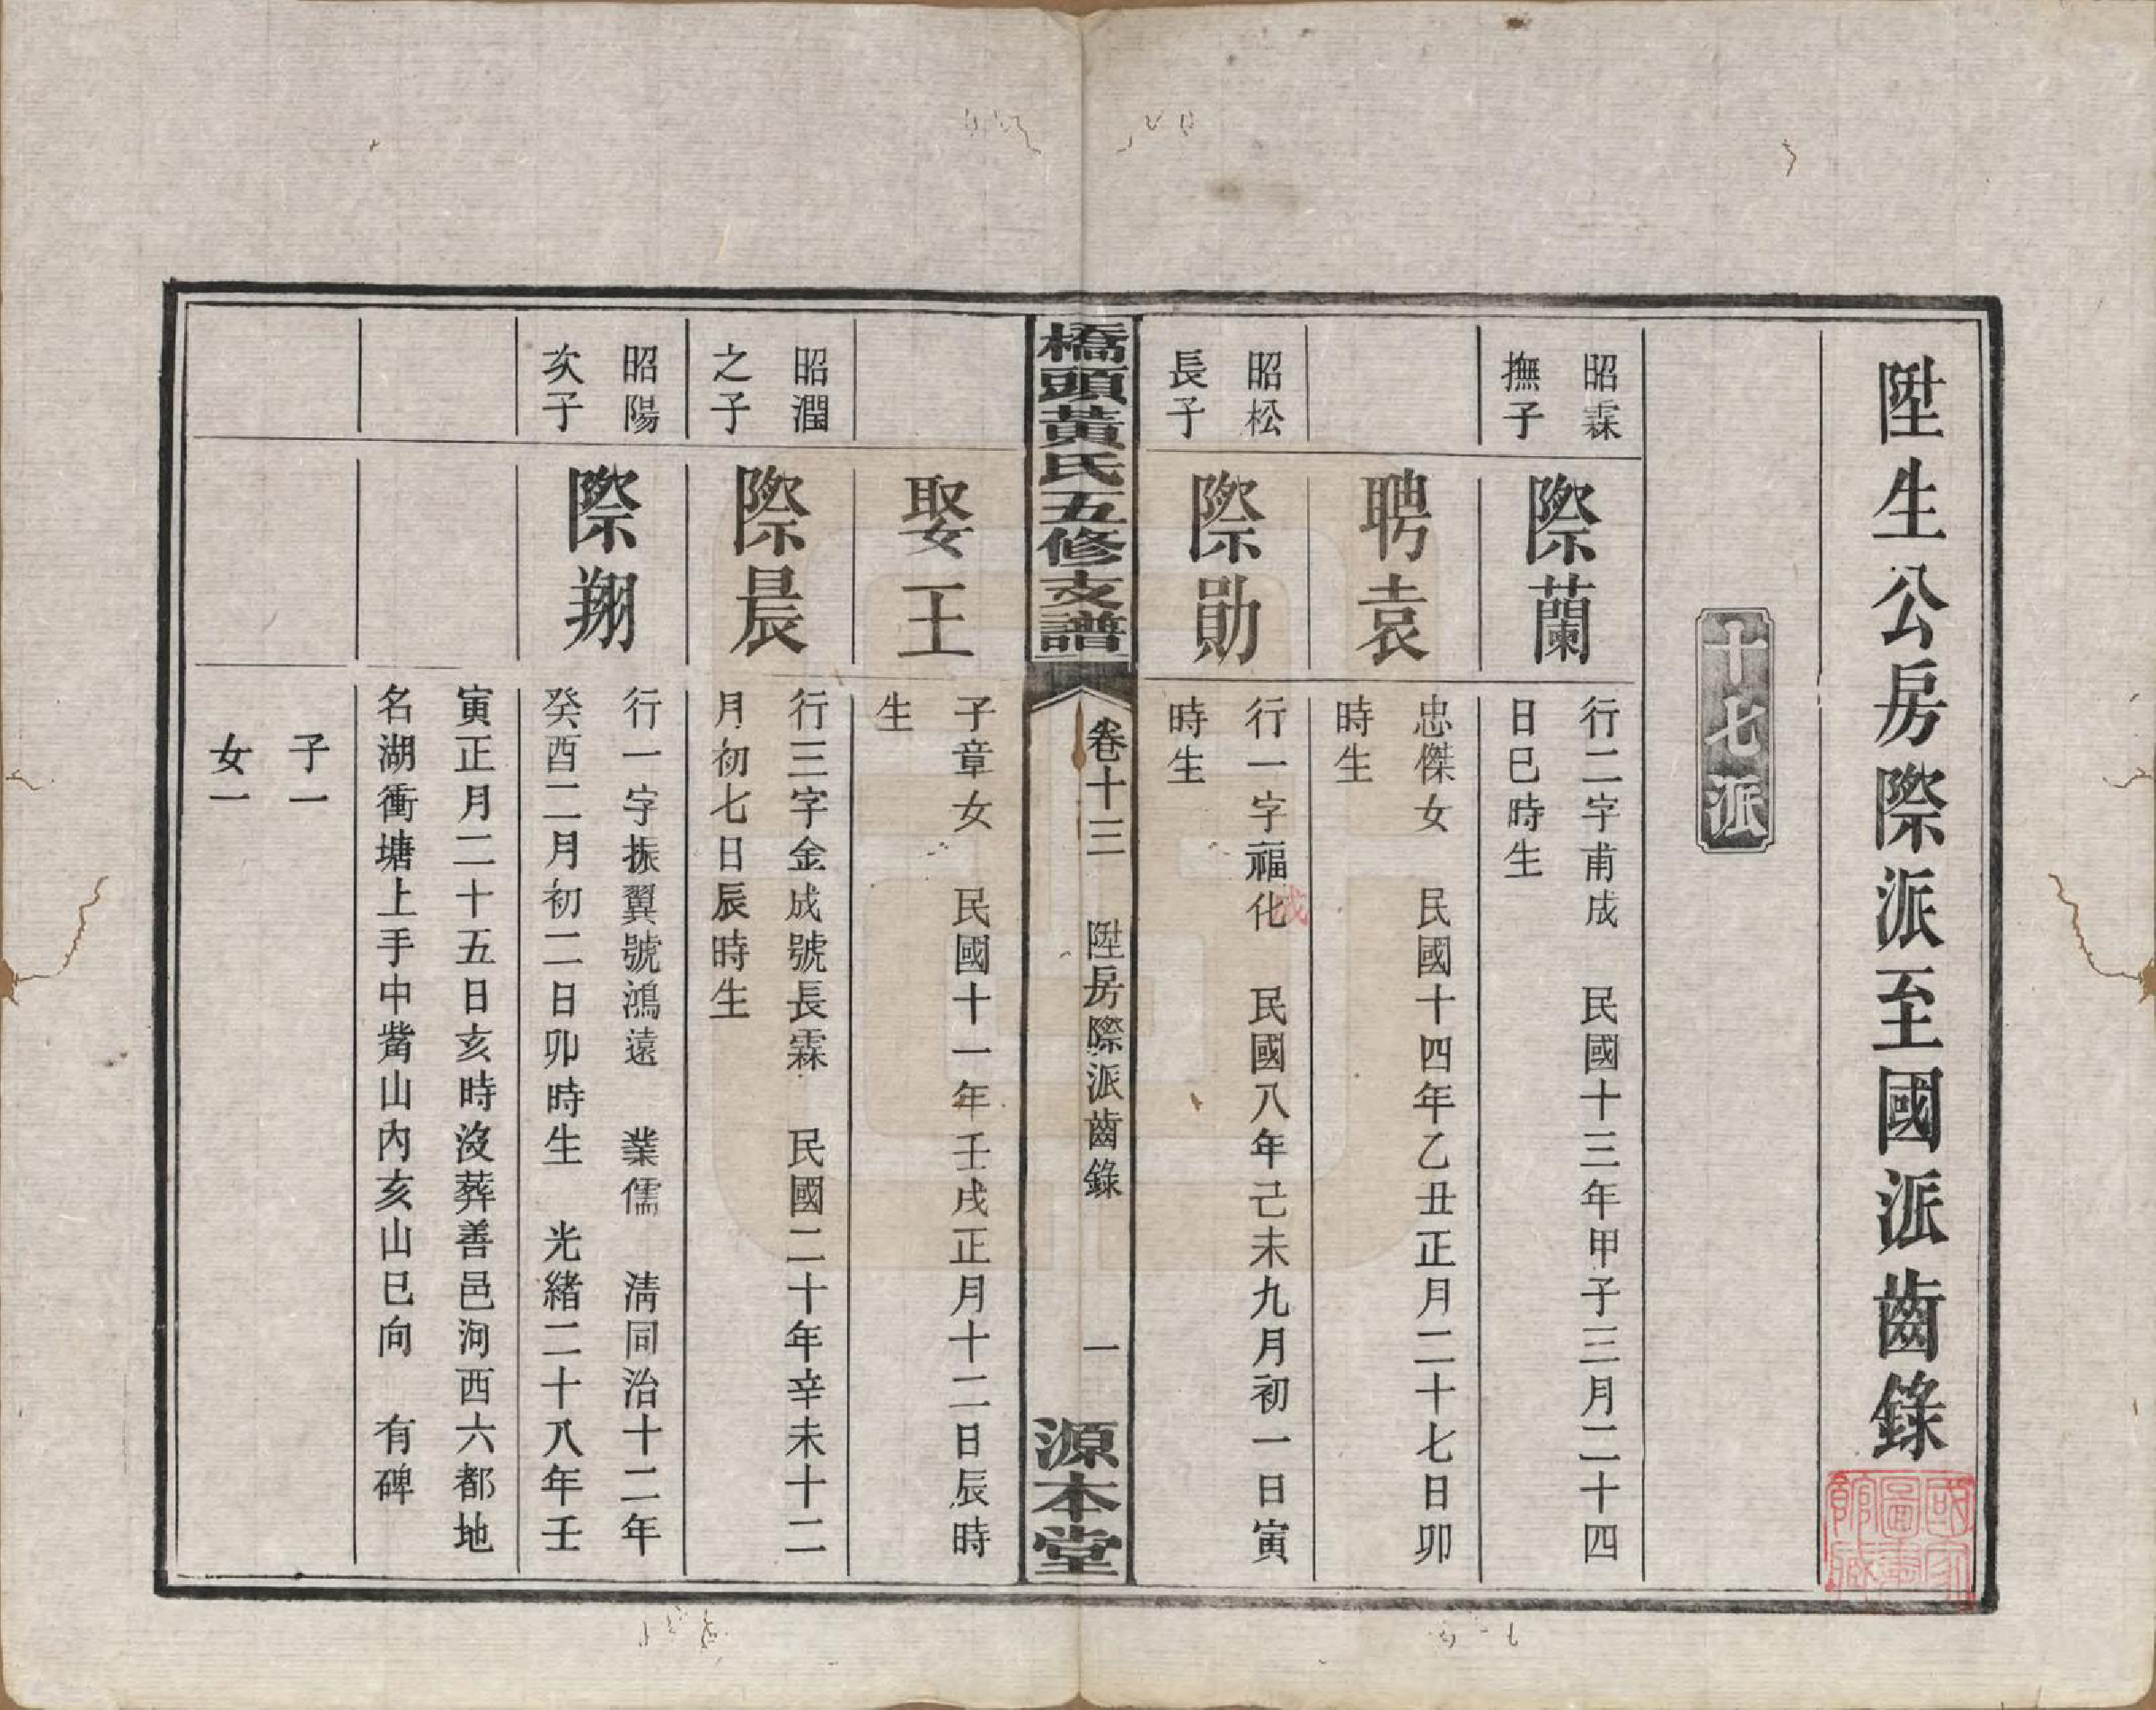 陞生公房際派至國派齒錄
十七派
昭霖
撫子
際蘭
行二字甫成　民國十三年甲子三月二十四
日巳時生
聘袁
忠傑女　民國十四年乙丑正月二十七日卯
時生
昭松
長子
際勛
行一字福化　民國八年己未九月初一日寅
時生
成
橋頭黃氏五修支譜
卷十三　陞房際派齒錄　一
源本堂
娶王
子章女　民國十一年壬戌正月十二日辰時
生
昭潤
之子
際晨
行三字金成號長霖　民國二十年辛未十二
月初七日辰時生
昭陽
次子
際翔
行一字振翼號鴻遠　業儒　清同治十二年
癸酉二月初二日卯時生　光緒二十八年壬
寅正月二十五日亥時沒葬善邑河西六都地
名湖衝塘上手中嵴山內亥山巳向　有碑
子一
女一
國家圖書館藏